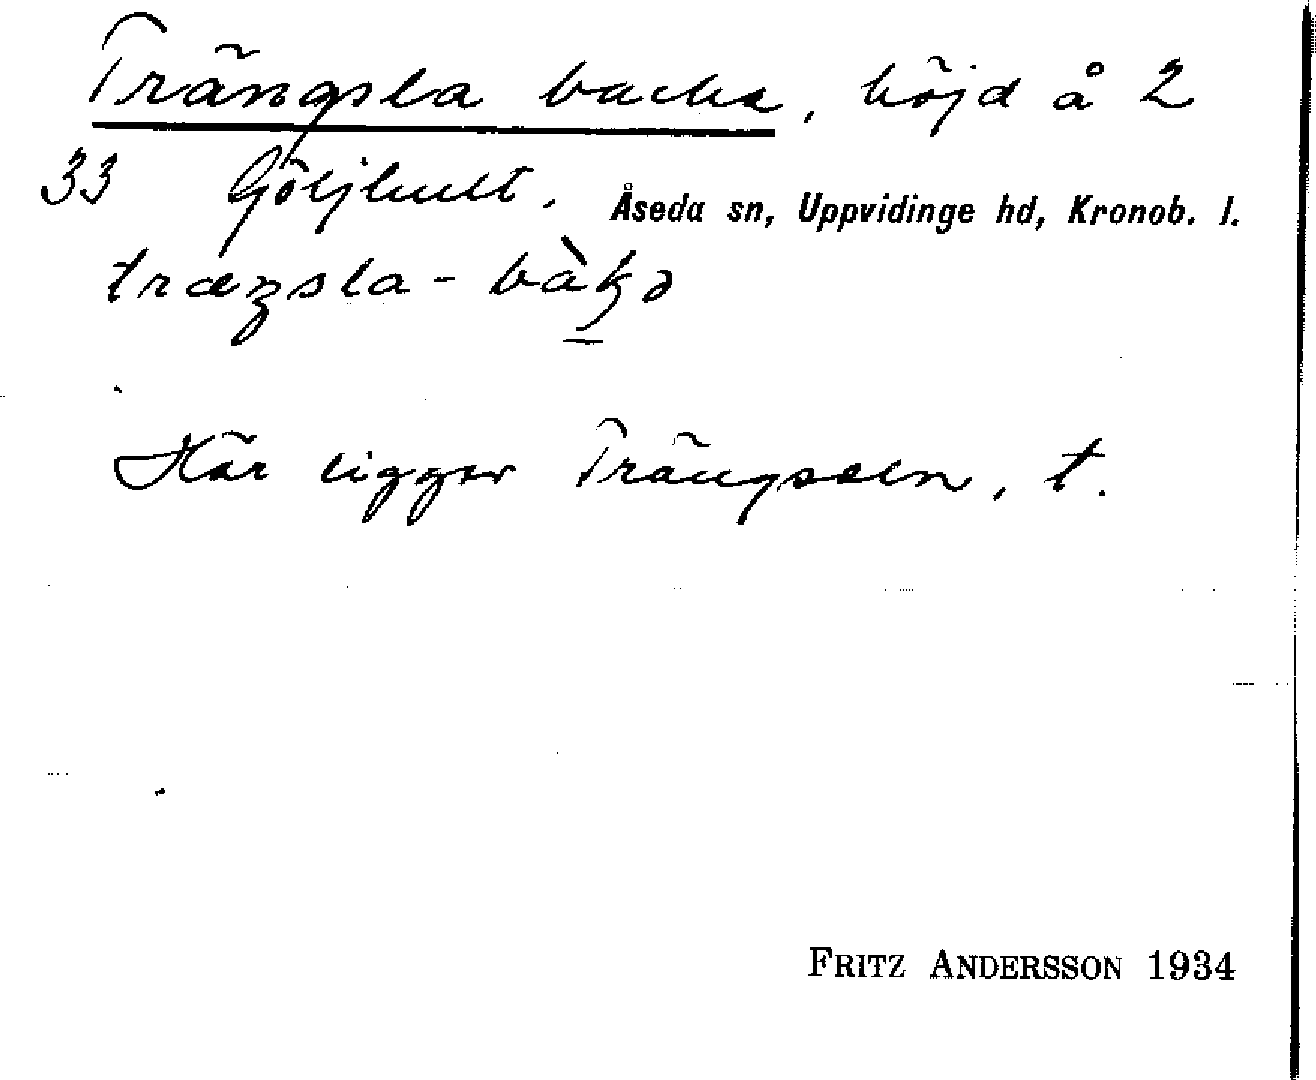 Trängsla backe, höjd å 2
33 Göljhult. Åseda sn, Uppvidinge hd, Kronob. l.
Här ligger Trängseln, t.
FRITZ ANDERSSON 1934